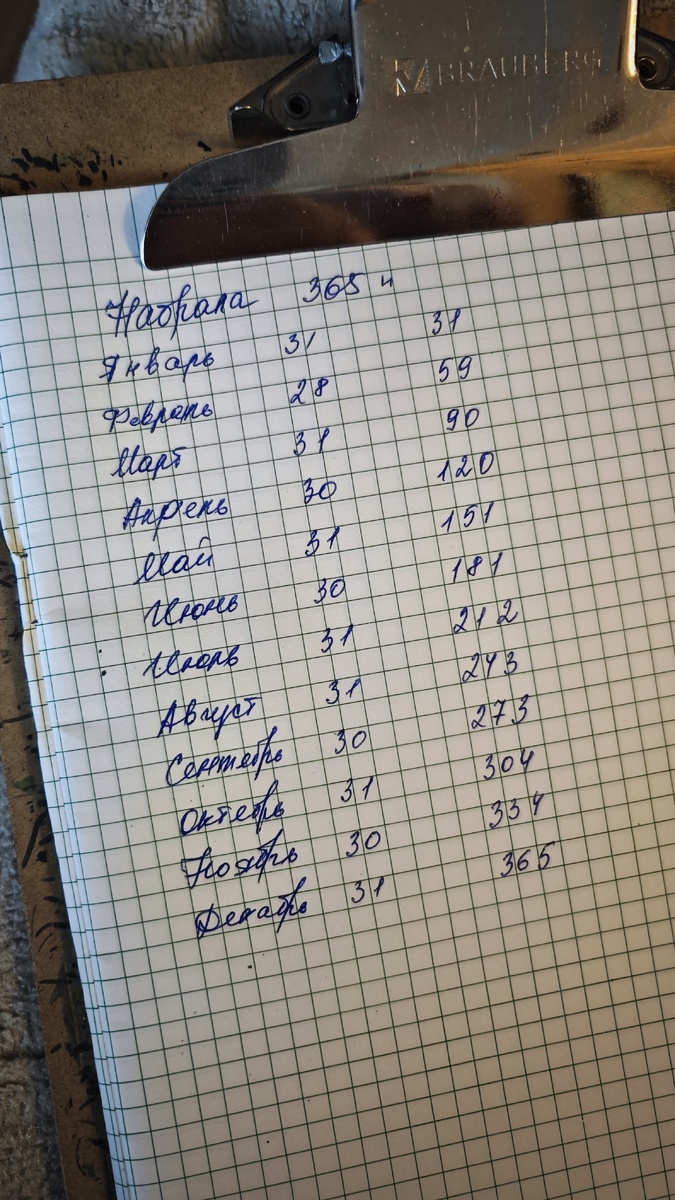 BRAUBERG
Набрала 365 ч
Январь 31 31
Февраль 28 59
Март 31 90
Апрель 30 120
Май 31 151
Июнь 30 181
Июль 31 212
Август 31 243
Сентябрь 30 273
Октябрь 31 304
Ноябрь 30 334
Декабрь 31 365